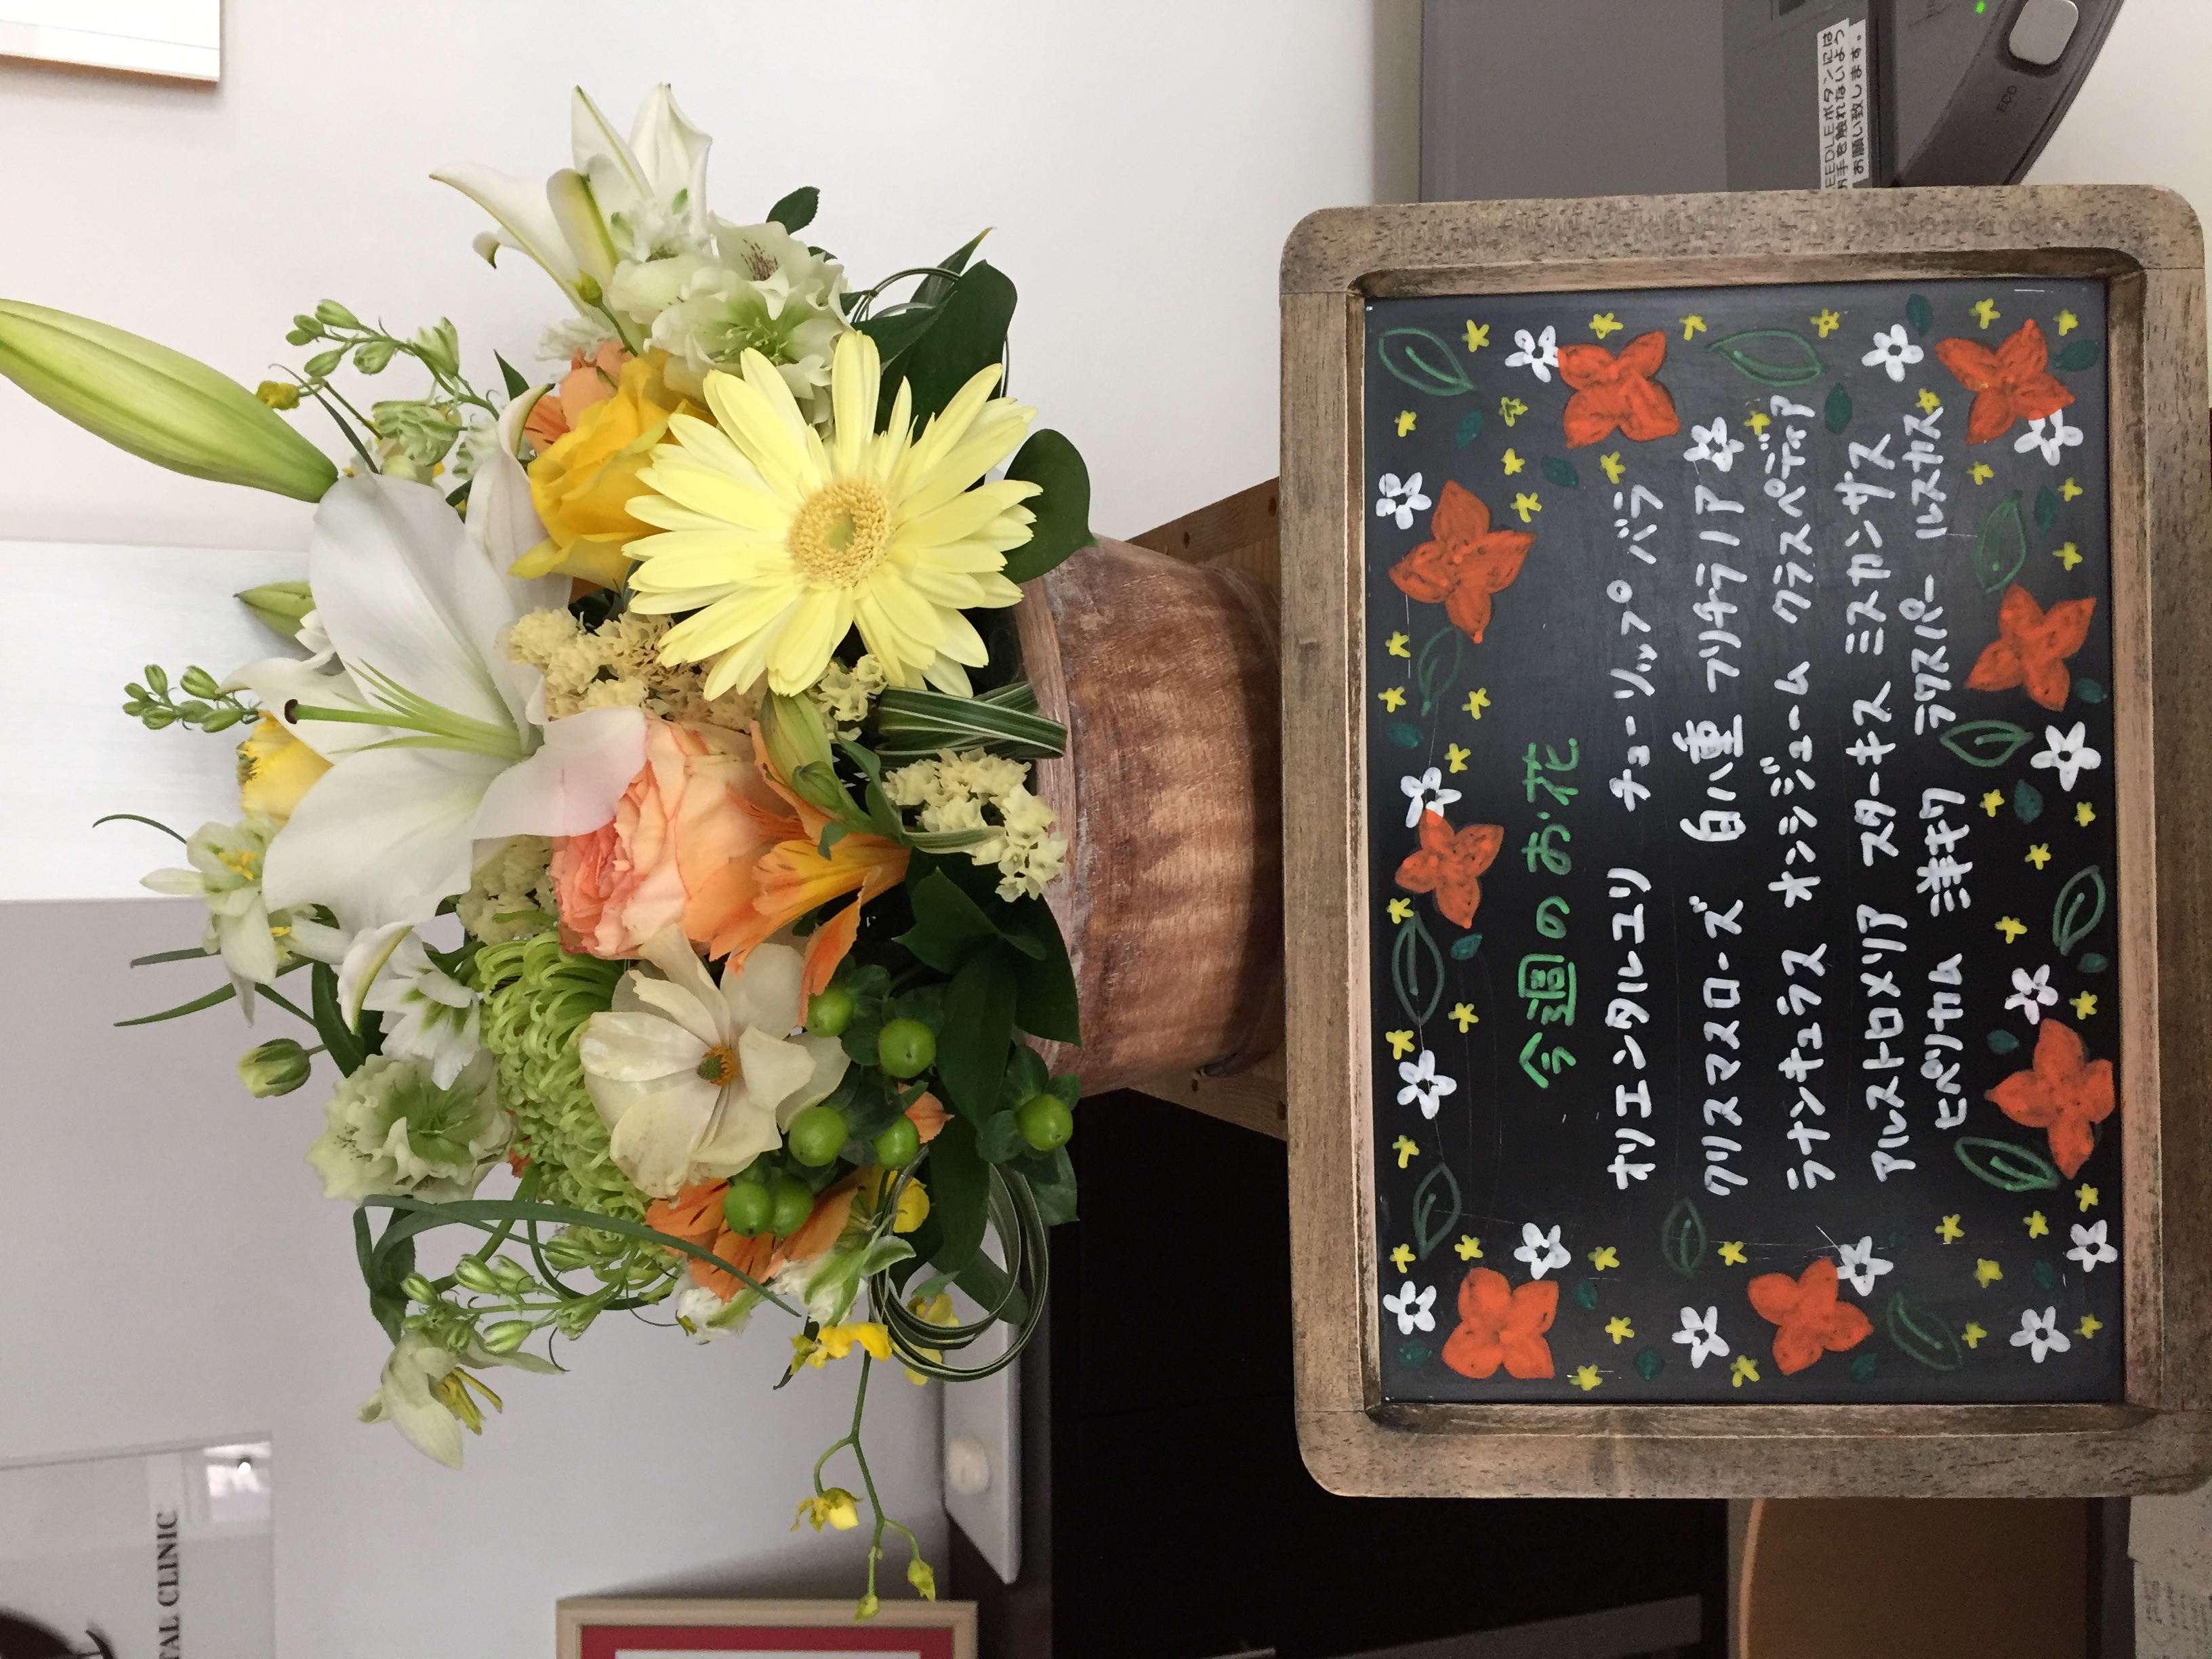 今週のお花
オリエンタルユリ チューリップ バラ
クリスマスローズ 白八重 フリチラリア
ラナンキュラス オンシジューム クラスペディア
アルストロメリア スターキス ミスカンザス
ヒペリカム 洋キク ラクスパー ルスカス
EEDLEボタンには
お手を触れないよう
お願い致します。
ECO
TAL CLINIC